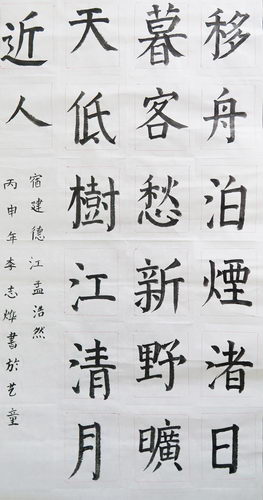 移舟泊煙渚日
暮客愁新野曠
天低樹江清月
近人
宿建德江孟浩然
丙申年李志燁書於艺童